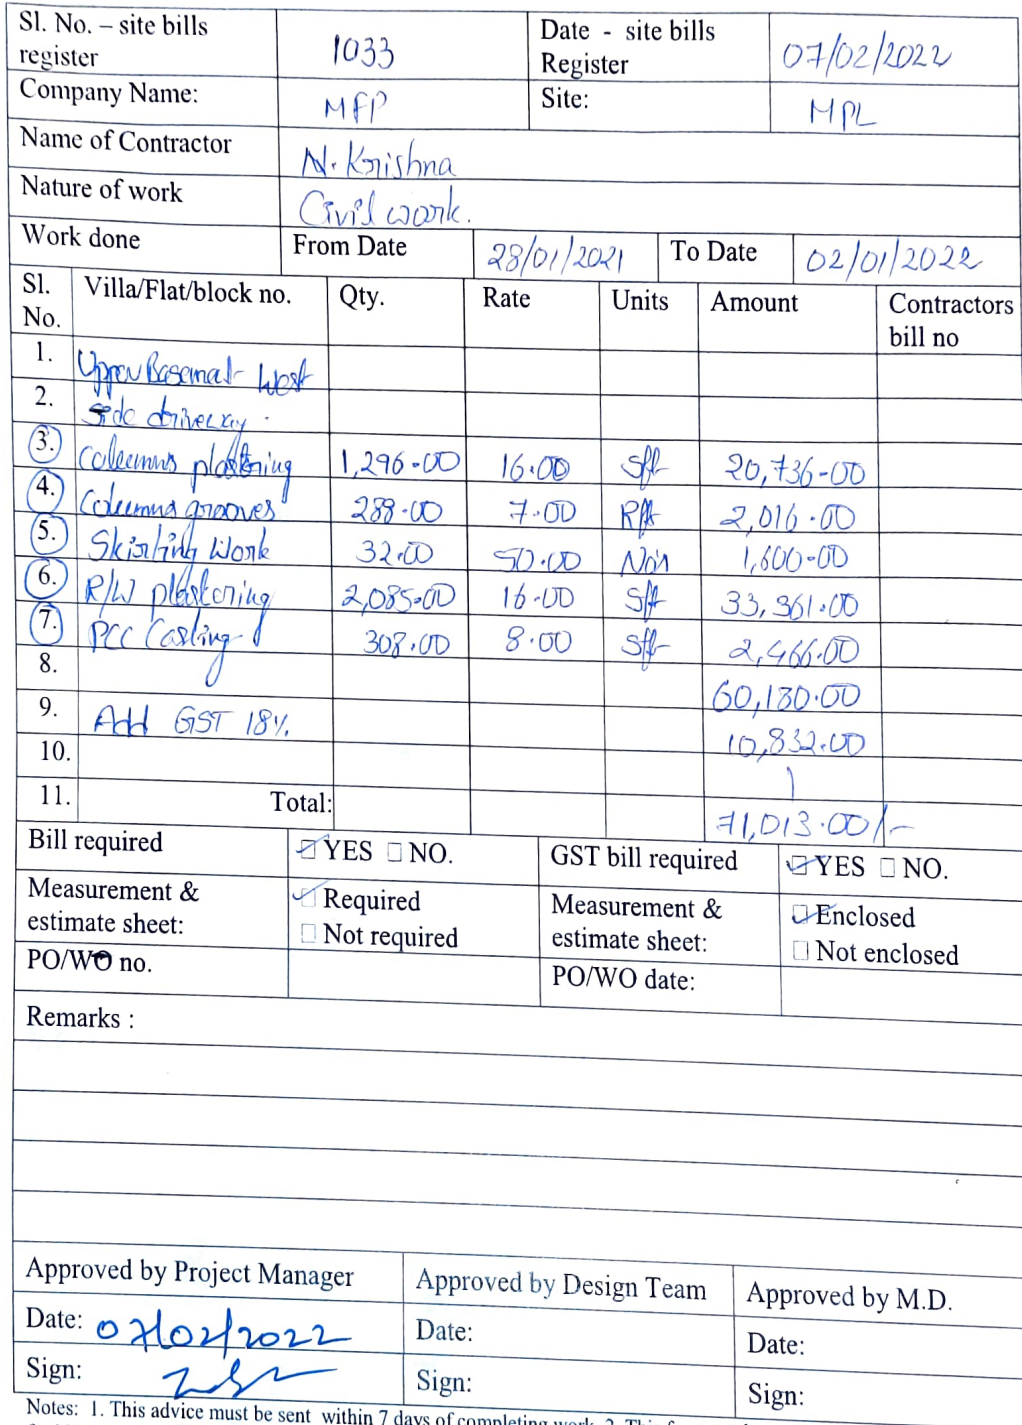 Sl. No. – site bills register 1033 Date - site bills Register 07/02/2022
Company Name: MFP Site: MPL
Name of Contractor N. Krishna
Nature of work Civil work.
Work done From Date 28/01/2021 To Date 02/01/2022
Sl. No. Villa/Flat/block no. Qty. Rate Units Amount Contractors bill no
1. Upper Basemat- West
2. Side driveway.
3. Columns plastering 1,296-00 16.00 Sft 20,736-00
4. Columns grooves 288-00 7-00 Rft 2,016.00
5. Skirting Work 32.00 50.00 No's 1,600-00
6. R/W plastering 2,085-00 16-00 Sft 33,361.00
7. PCC Casting 308.00 8.00 Sft 2,466.00
8. 60,180.00
9. Add GST 18%. 10,832.00
10.
11. Total: 71,013.00/-
Bill required YES NO. GST bill required YES NO.
Measurement & estimate sheet: Required Not required Measurement & estimate sheet: Enclosed Not enclosed
PO/WO no. PO/WO date:
Remarks :
Approved by Project Manager Approved by Design Team Approved by M.D.
Date: 07/02/2022 Date: Date:
Sign: Sign: Sign:
Notes: 1. This advice must be sent within 7 days of completing work. 2. This